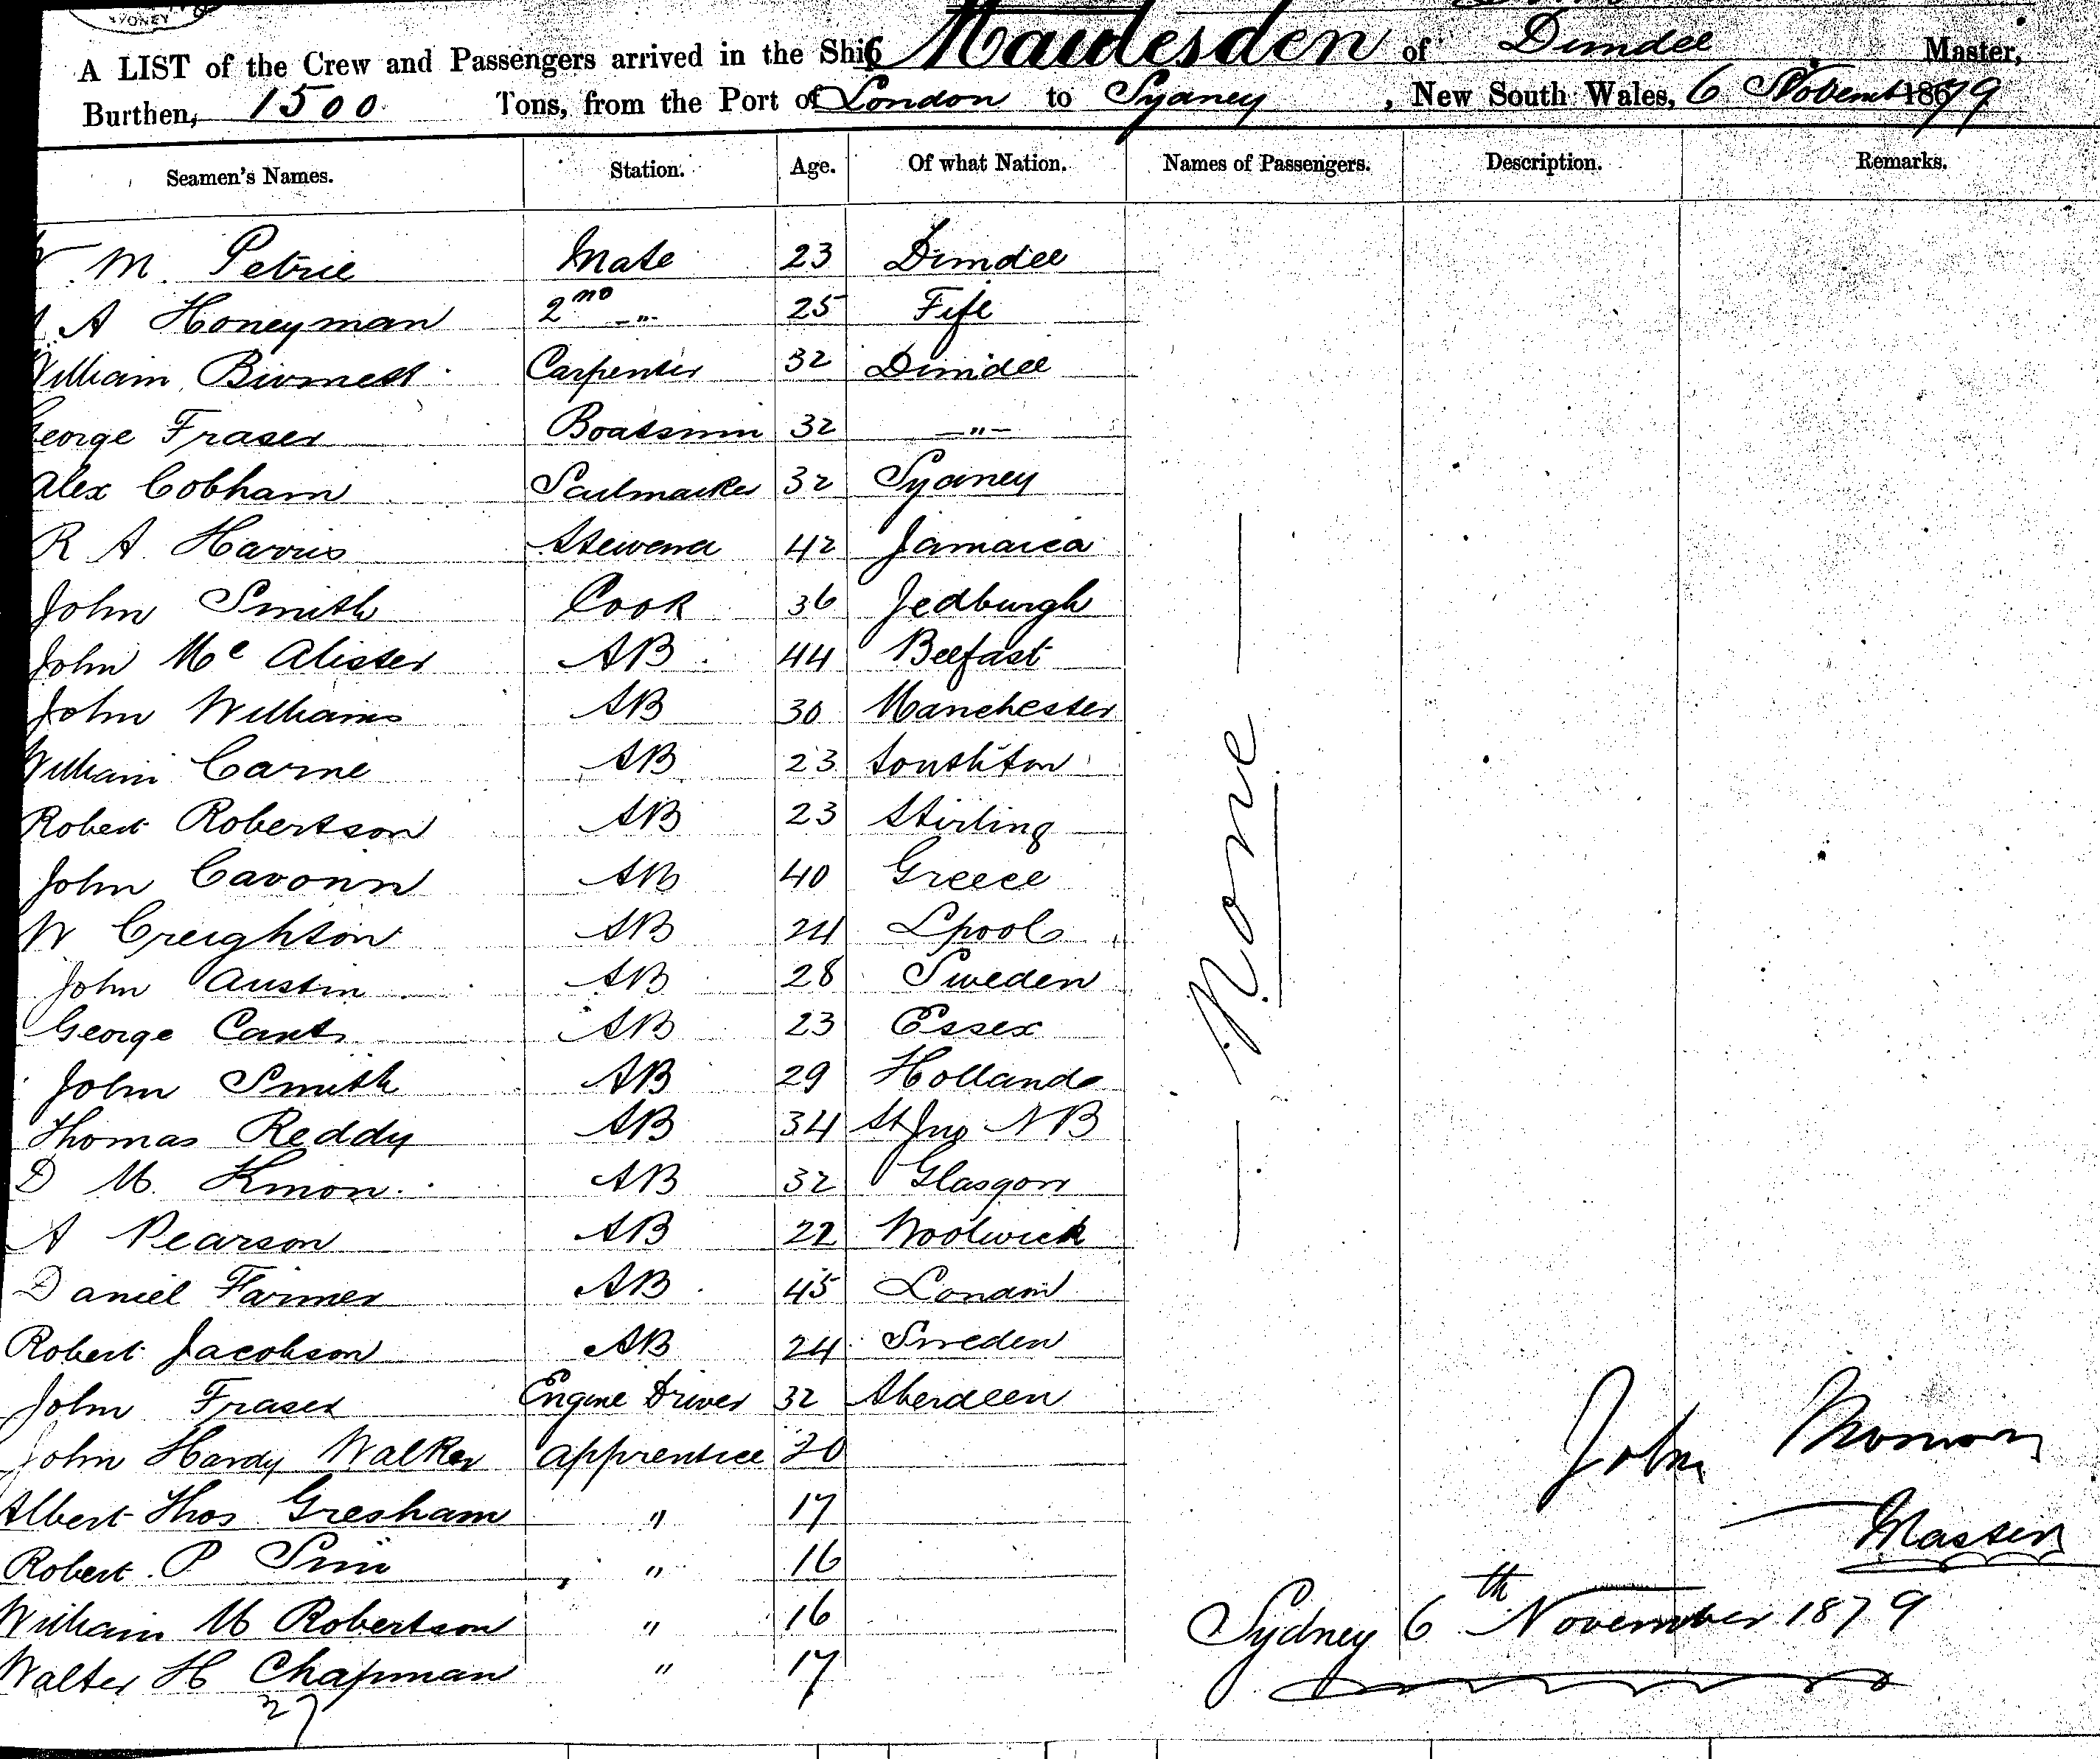 SYDNEY
A LIST of the Crew and Passengers arrived in the Ship Maulesden of Dundee Master,
Burthen, 1500 Tons, from the Port of London to Sydney, New South Wales, 6 November 1879
Seamen's Names. Station. Age. Of what Nation. Names of Passengers. Description. Remarks.
M. Petrie Mate 23 Dundee
A Honeyman 2nd -"- 25 Fife
William Carpenter 32 Dundee
George Fraser Boatswin 32 -"-
Alex Cobham Sailmaker 32 Sydney
R A. Harris Steward 42 Jamaica
John Smith Cook 36 Jedburgh
John Mc Alister AB 44 Belfast
John Williams AB 30 Manchester
William Carne AB 23 Southton
Robert Robertson AB 23 Stirling
John AB 40 Greece
W Creighton AB 24 Lpool
John Austin AB 28 Sweden
George Cant AB 23 Essex
John Smith AB 29 Holland
Thomas Reddy AB 34 St Jno NB
D M. AB 32 Glasgow
A Pearson AB 22 Woolwich
Daniel Farmer AB 45 London
Robert Jacobson AB 24 Sweden
John Fraser Engine Driver 32 Aberdeen
John Hardy Walker Apprentice 20
Albert Thos Gresham " 17
Robert P Sim " 16
William M Robertson " 16
Walter H Chapman " 17
27
— None —
John
Master
Sydney 6th November 1879